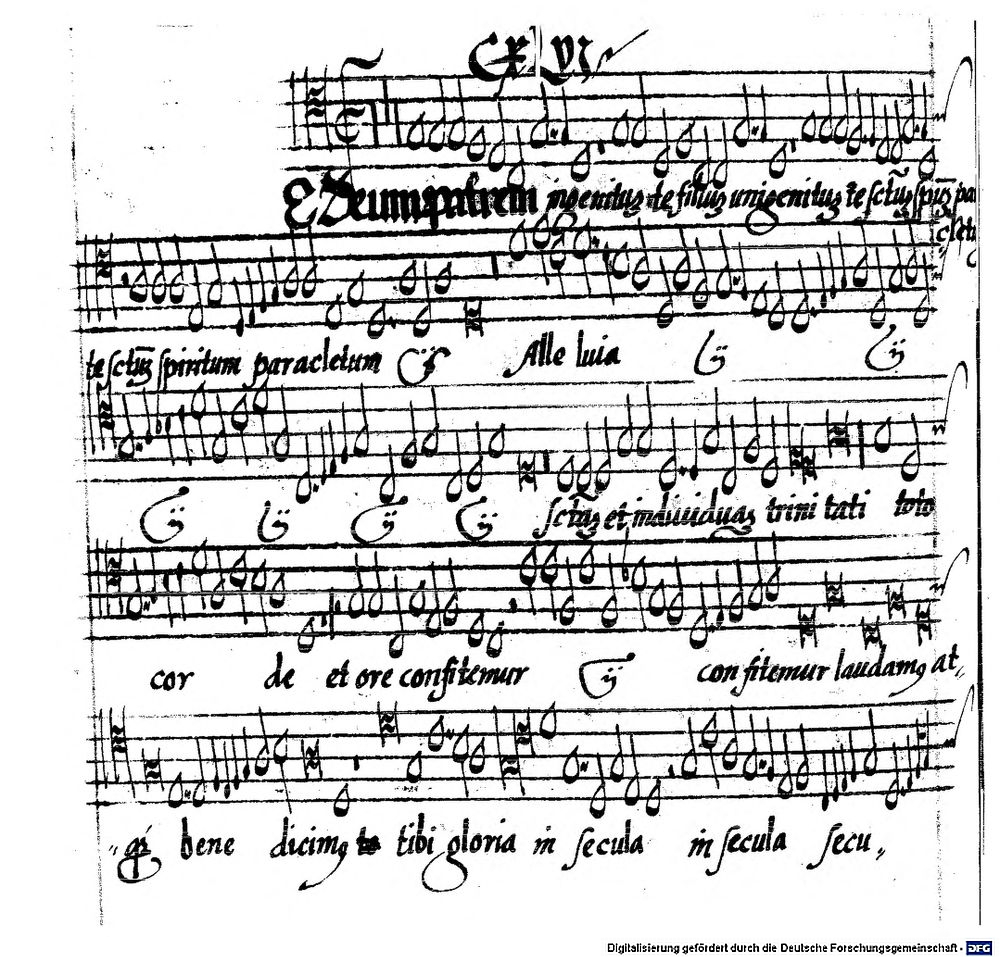 CXLVI
TE Deum patrem ingenituʒ te filiuʒ unigenituʒ te sctu̅ʒ spiu̅ʒ pa
cletu
te sctu̅ʒ spiritum paracletum ij Alle luia ij ij
ij ij ij ij scta̅ʒ et indiuiduaʒ trini tati toto
cor de et ore confitemur ij con fitemur laudamꝯ at„
„qꝫ bene dicimꝯ te tibi gloria in secula in secula secu„
Digitalisierung gefördert durch die Deutsche Forschungsgemeinschaft - DFG